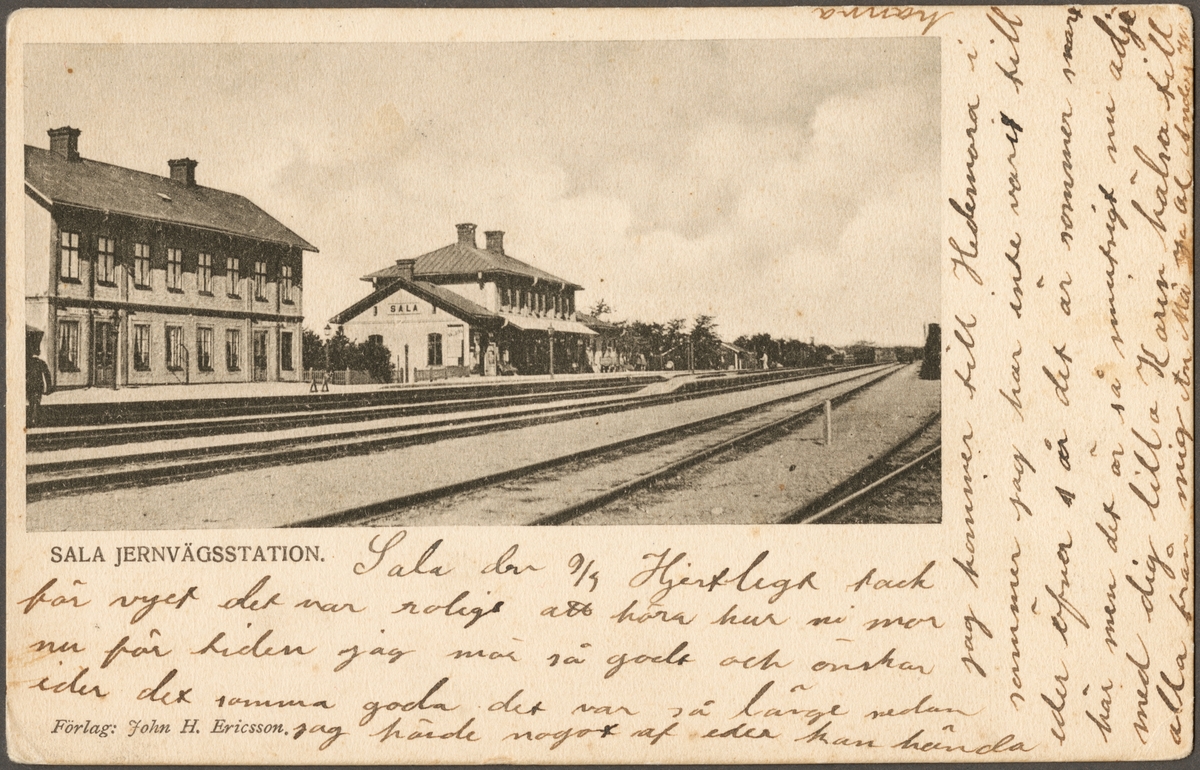 SALA
SALA JERNVÄGSSTATION.
Sala den 9/4 Hjertlegt tack
för vyet det var roligt att höra hur ni mor
nu för tiden jag mår så godt och önskar
eder det samma goda det var så länge sedan
Förlag: John H. Ericsson.
jag hörde nogot af eder kan hända
jag kommer till Hedemora i
sommer jag har inte varit till
eder öfver så det är sommer snart
här men det är så smutsigt nu adjö
med dig lilla Karin hälsa till
alla från mig
hanna